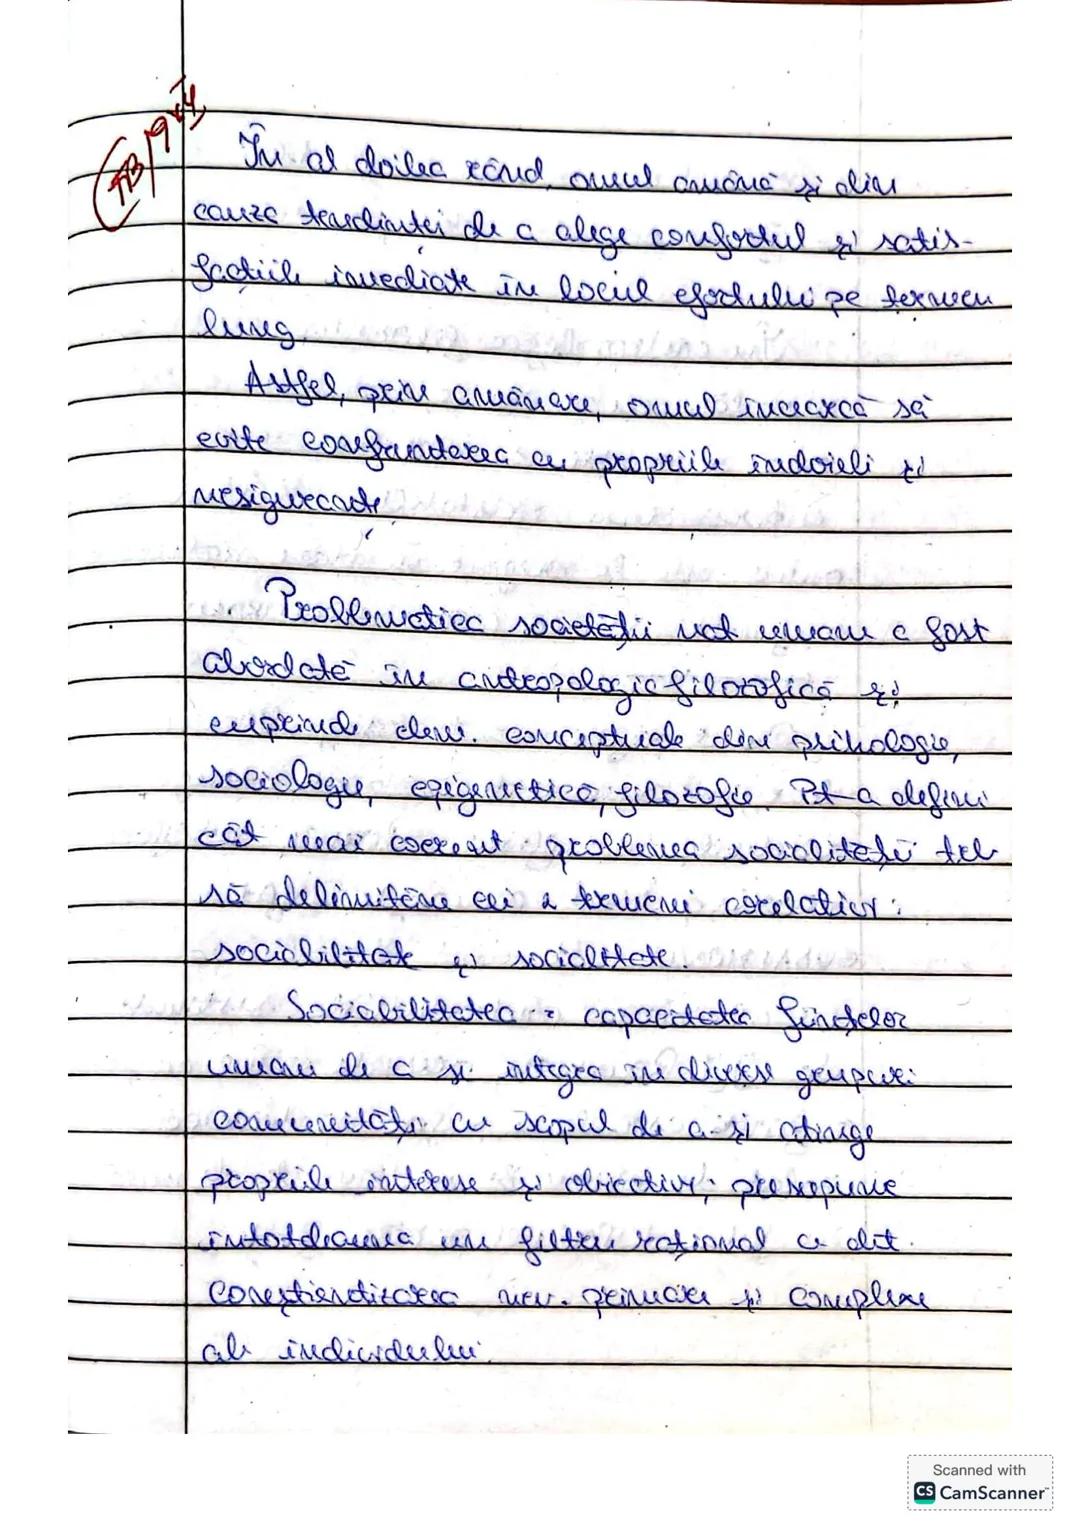 În al doilea rând, omul amână și din
cauza tendinței de a alege confortul și satis-
facțiile imediate în locul efortului pe termen
lung.
Astfel, prin amânare, omul încearcă să
evite confruntarea cu propriile îndoieli și
nesiguranțe.
Problematica societății nat umane a fost
abordată în antropologie filozofică și
cuprinde elem. conceptuale din psihologie,
sociologie, epigenetică, filozofie. Pt a defini
cât mai coerent problema socialității treb
să delimităm cei 2 termeni corelativi:
sociabilitate și socialitate.
Sociabilitatea = capacitatea ființelor
umane de a se integra în diverse grupuri
comunități cu scopul de a-și atinge
propriile interese și obiective; presupune
întotdeauna un filtru rațional a det.
Conștientizarea nev. primare și complexe
ale individului.
Scanned with
CS CamScanner